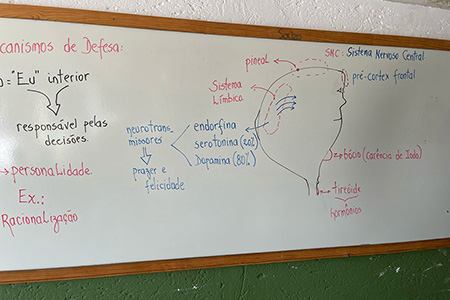 canismos de Defesa:
o = "Eu" interior
responsável pelas
decisões.
→ personalidade.
Ex.:
Racionalização
neurotrans_
missores
prazer e
felicidade
endorfina
serotonina (20%)
Dopamina (80%)
Sistema
Límbico
pineal
SNC: Sistema Nervoso Central
pré-cortex frontal
bócio (carência de Iodo)
tireóide
hormônios